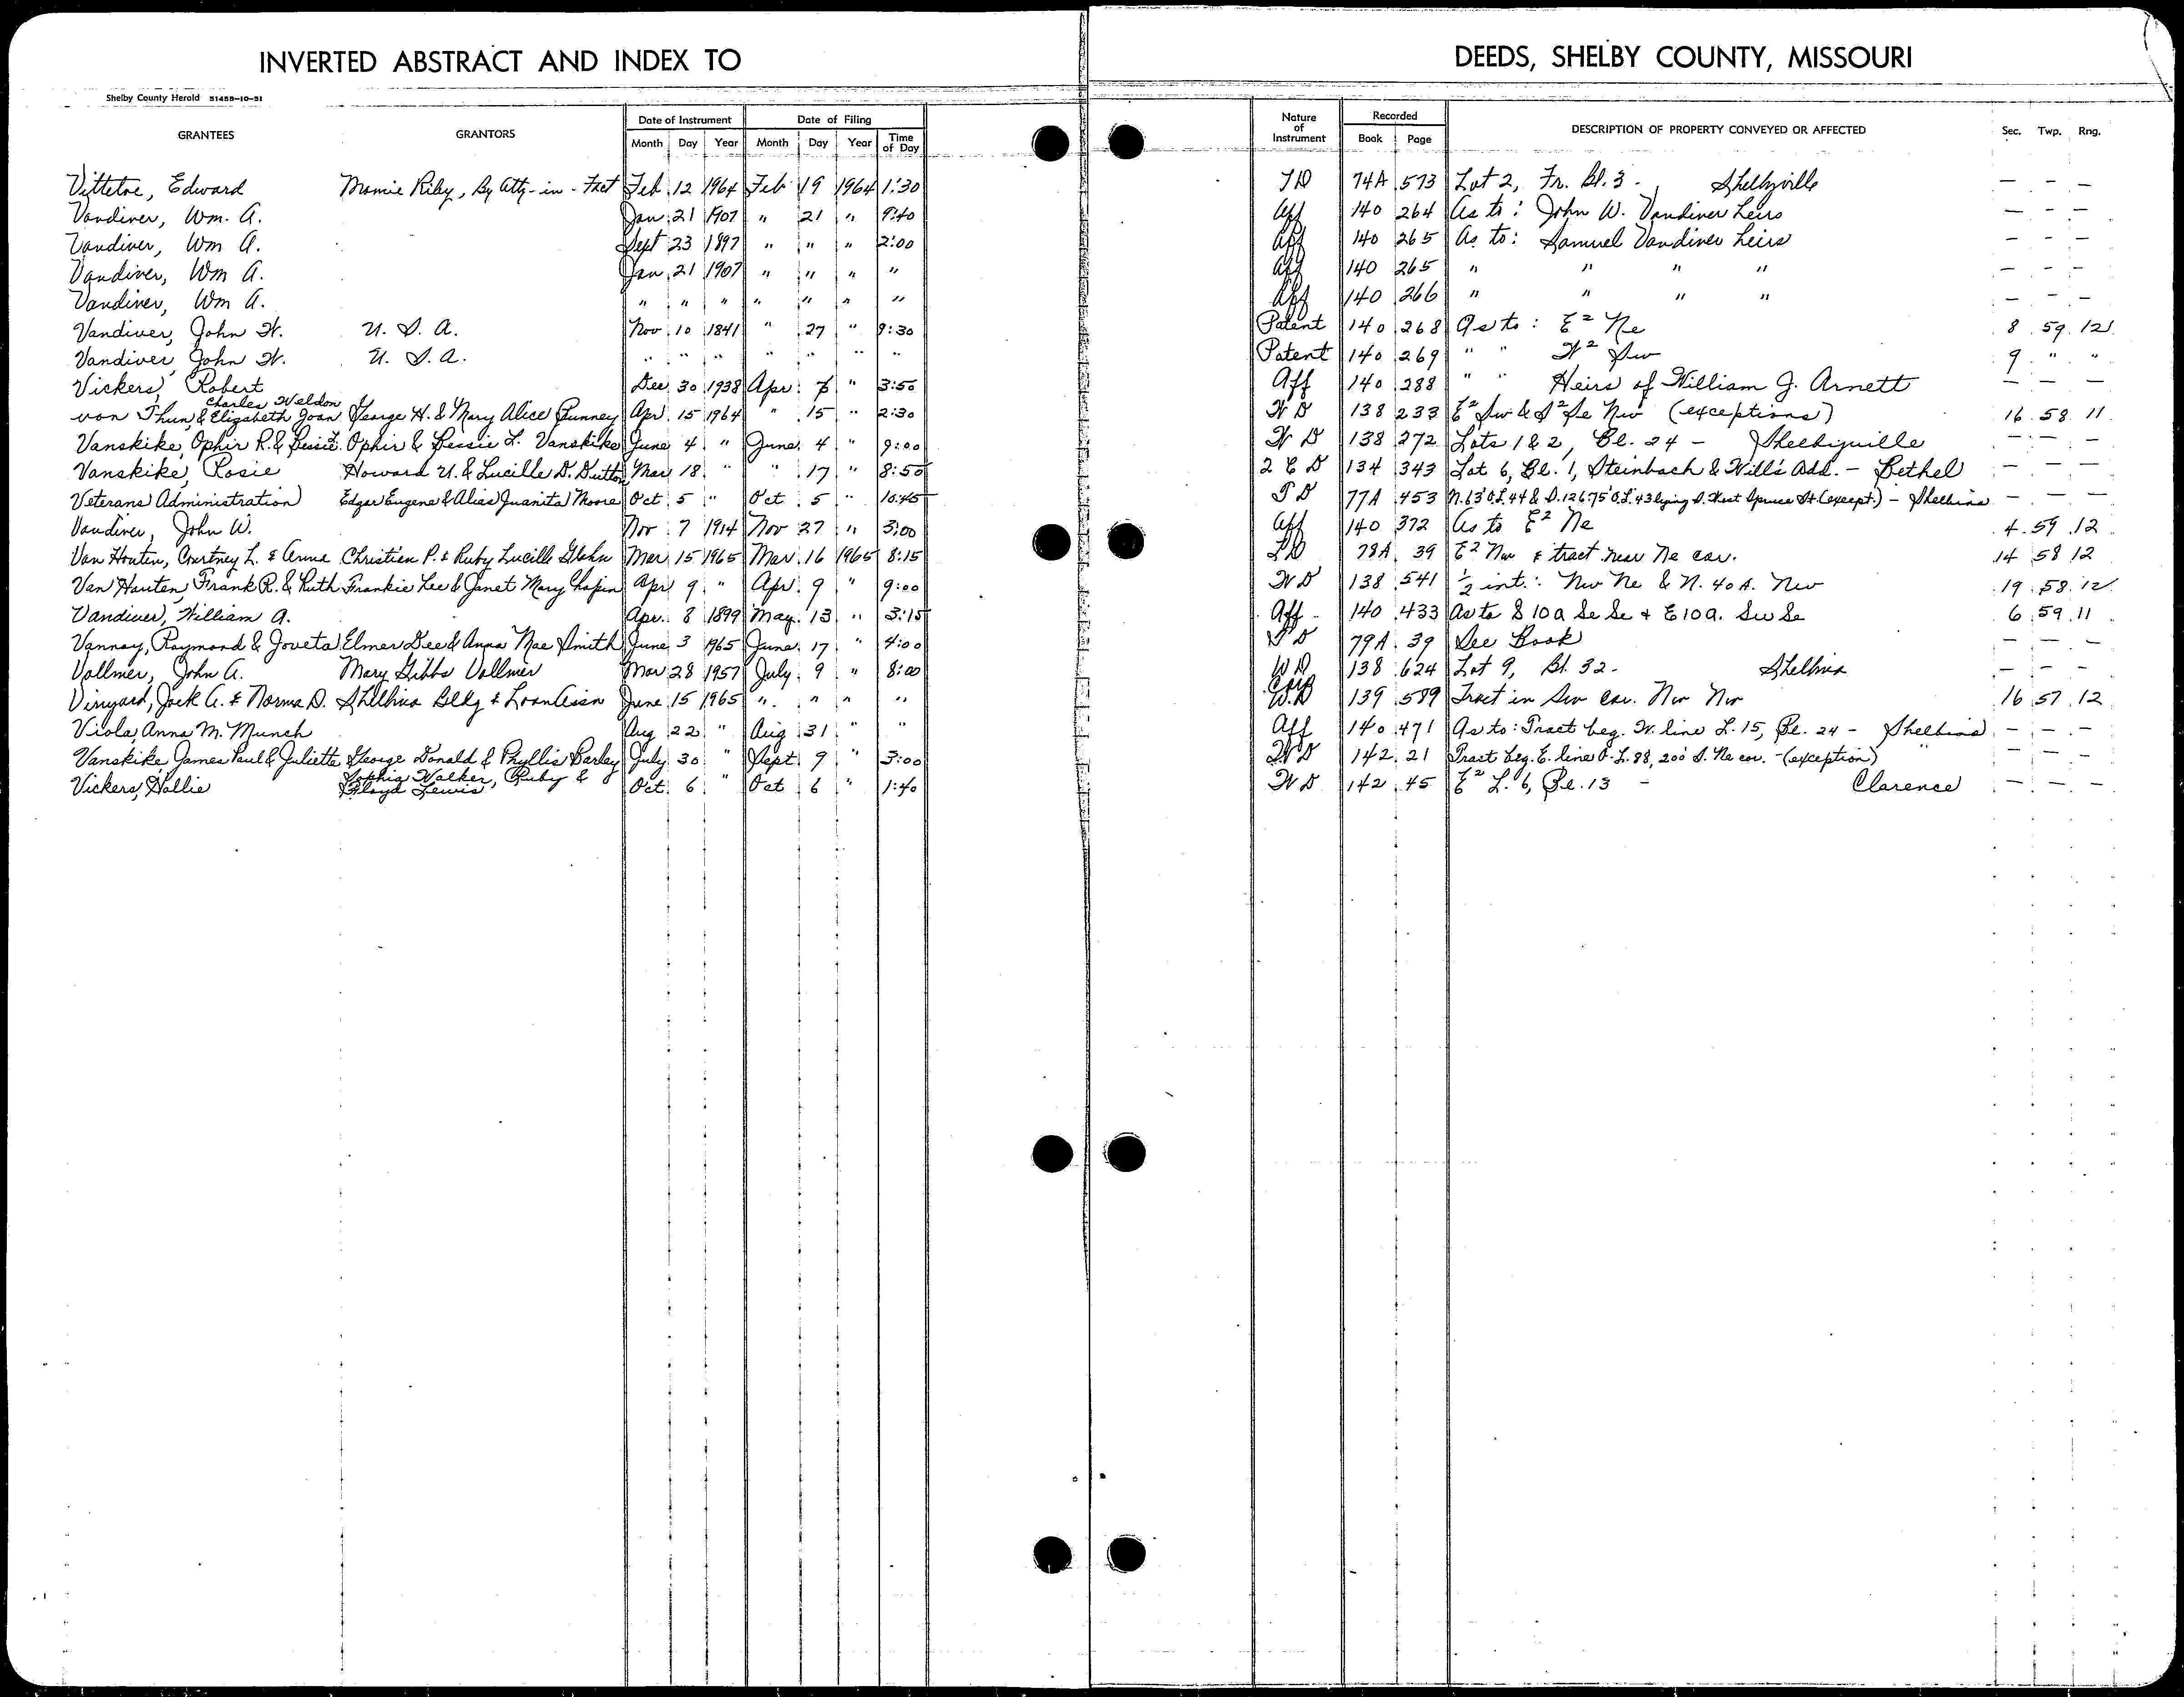 INVERTED ABSTRACT AND INDEX TO DEEDS, SHELBY COUNTY, MISSOURI
Shelby County Herald 51458-10-51
GRANTEES GRANTORS Date of Instrument Date of Filing Nature of Instrument Recorded DESCRIPTION OF PROPERTY CONVEYED OR AFFECTED Sec. Twp. Rng.
Month Day Year Month Day Year Time of Day Book Page
Vittetoe, Edward Mamie Riley, By Atty-in-Fact Feb 12 1964 Feb 19 1964 1:30 TD 74A 573 Lot 2, Fr. Bl. 3 - Shelbyville — — —
Vandiver, Wm. A. Jan 21 1907 " 21 " 9:40 Aff 140 264 As to: John W. Vandiver Heirs — — —
Vandiver, Wm A. Sept 23 1897 " " " 2:00 Aff 140 265 As to: Samuel Vandiver Heirs — — —
Vandiver, Wm A. Jan 21 1907 " " " " Aff 140 265 " " " " — — —
Vandiver, Wm A. " " " " " " " Aff 140 266 " " " " — — —
Vandiver, John W. U. S. A. Nov 10 1841 " 27 " 9:30 Patent 140 268 As to: E² Ne 8 59 12
Vandiver, John W. U. S. A. " " " " " " " Patent 140 269 " " W² Sw 9 " "
Vickers, Robert Dec 30 1938 Apr. " 3:50 Aff 140 288 " " Heirs of William J. Arnett — — —
von Thun, Charles Weldon & Elizabeth Joan George H. & Mary Alice Gunney Apr. 15 1964 " 15 " 2:30 WD 138 233 E² Sw & S² Se Nw (exceptions) 16 58 11
Vanskike, Ophir R. & Bessie L. Ophir & Bessie L. Vanskike June 4 " June 4 " 9:00 WD 138 272 Lots 1 & 2, Bl. 24 - Shelbyville — — —
Vanskike, Rosie Howard U. & Lucille D. Dutton Mar 18 " " 17 " 8:50 2 E D 134 343 Lot 6, Bl. 1, Steinbach & Will's Add. - Bethel — — —
Veterans Administration Edgar Eugene & Alias Juanita Moore Oct 5 " Oct 5 " 10:45 TD 77A 453 N. 63' O.L. 44 & S. 126.75' O.L. 43 lying S. West Spruce St. (except.) - Shelbina — — —
Vandiver, John W. Nov 7 1914 Nov 27 " 3:00 Aff 140 372 As to E² Ne 4 59 12
Van Houten, Courtney L. & Anna Christien P. & Ruby Lucille Mar 15 1965 Mar 16 1965 8:15 TD 78A 39 E² Nw & tract near Ne cor. 14 58 12
Van Houten, Frank R. & Ruth Frankie Lee & Janet Mary Chapin Apr 9 " Apr. 9 " 9:00 WD 138 541 ½ int.: Nw Ne & N. 40 A. Nw 19 58 12
Vandiver, William A. Apr. 8 1899 May 13 " 3:15 Aff 140 433 As to S 10a Se Se & E 10a. Sw Se 6 59 11
Vannoy, Raymond & Joveta Elmer Dee & Anna Mae Smith June 3 1965 June 17 " 4:00 TD 79A 39 See Book — — —
Vollmer, John A. Mary Gibbs Vollmer Mar 28 1957 July 9 " 8:00 WD 138 624 Lot 9, Bl. 32 - Shelbina — — —
Vinyard, Jack A. & Norma D. Shelbina Bldg & Loan Assn June 15 1965 " " " " Corp W.D 139 589 Tract in Sw cor. Nw Nw 16 57 12
Viola, Anna M. Munch Aug 22 " Aug 31 " " Aff 140 471 As to: Tract beg. W. line L. 15, Bl. 24 - Shelbina — — —
Vanskike, James Paul & Juliette George Donald & Phyllis Barley July 30 " Sept 9 " 3:00 WD 142 21 Tract beg. E. line O.L. 88, 200' S. Ne cor. - (exception) " — — —
Vickers, Hollie Sophia Walker, Ruby & Floyd Lewis Oct. 6 " Oct 6 " 1:40 WD 142 45 E² L. 6, Bl. 13 - Clarence — — —